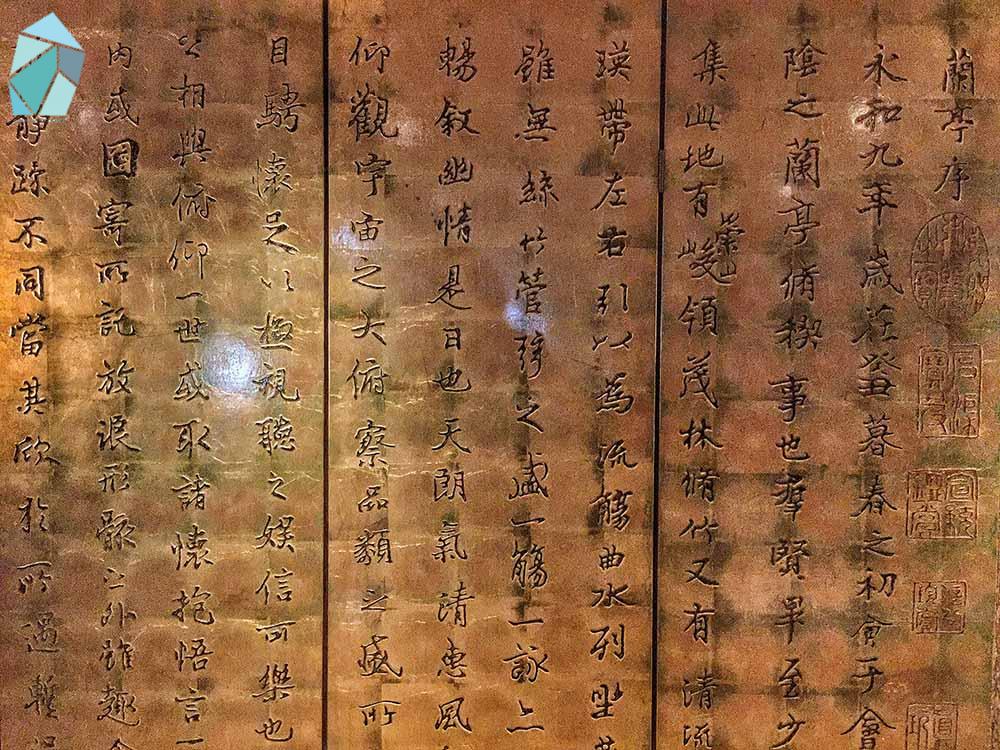 蘭亭序
永和九年歲在癸丑暮春之初會于會
陰之蘭亭脩稧事也羣賢畢至少
集此地有崇山峻領茂林脩竹又有清流
暎帶左右引以為流觴曲水列坐其
雖無絲竹管弦之盛一觴一詠亦
暢叙幽情是日也天朗氣清惠風
仰觀宇宙之大俯察品類之盛所
目騁懷足以極視聽之娛信可樂也
相與俯仰一世或取諸懷抱悟言一
內或因寄所託放浪形骸之外雖趣
靜躁不同當其欣於所遇暫得